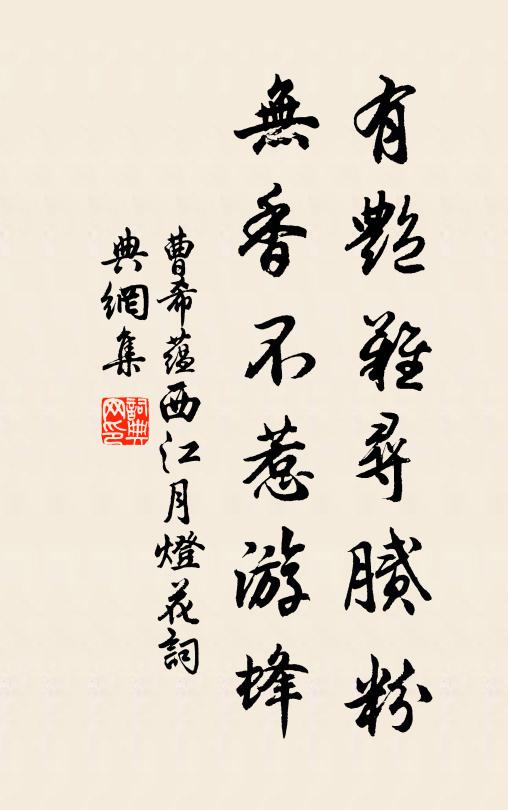 有艷難尋膩粉
無香不惹游蜂
曹希蕴西江月燈花詞
典網集
詞典網印